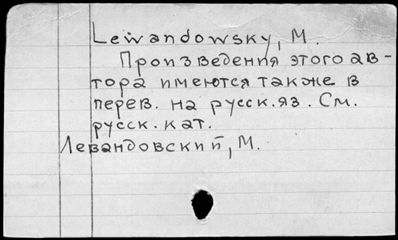 Lewandowsky, M.
Произведения этого ав-
тора имеются также в
перев. на русск. яз. См.
русск. кат.
Левандовский, М.